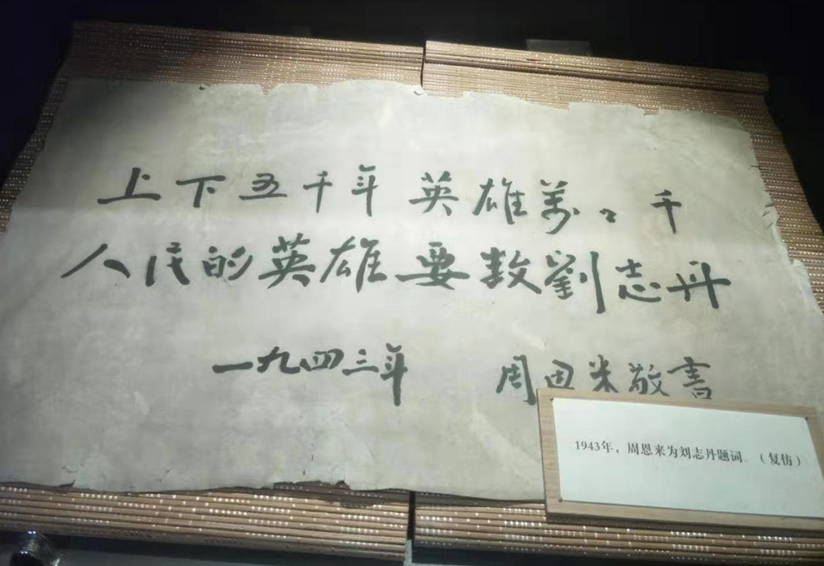 上下五千年英雄萬々千
人民的英雄要数劉志丹
一九四三年 周恩来敬書
1943年，周恩来为刘志丹题词。（复仿）